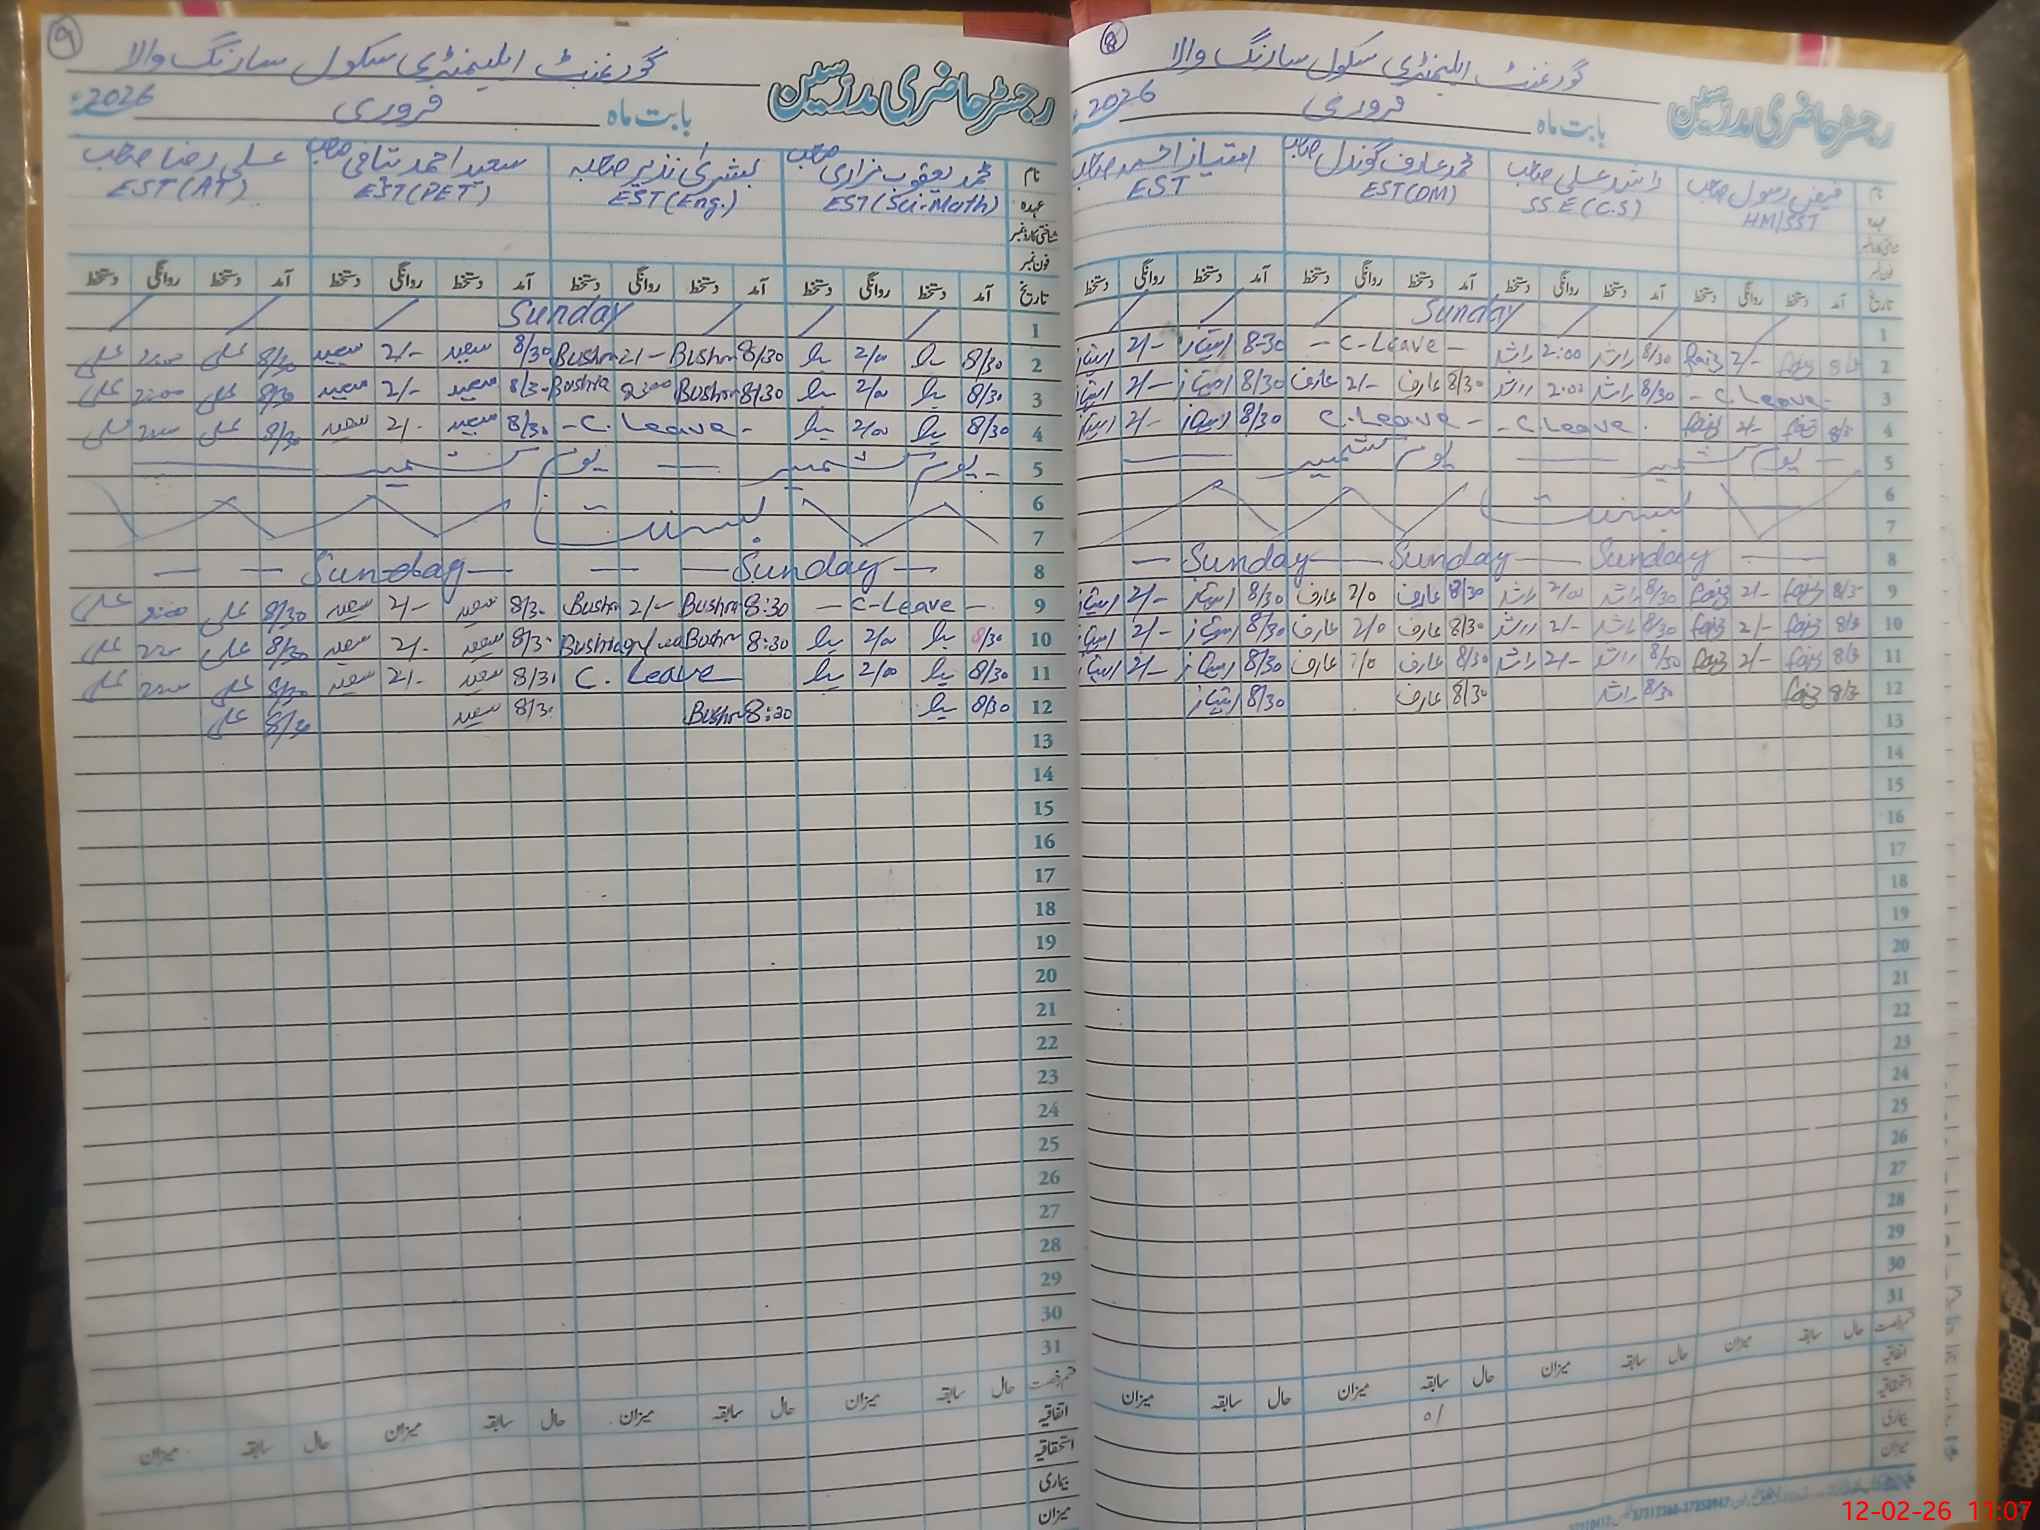 گورنمنٹ ایلیمنٹری سکول سارنگ والا
رجسٹر حاضری مدرسین
بابت ماہ فروری 2026
نام فیض رسول صاحب راشد علی صاحب محمد عارف گوندل صاحب امتیاز احمد صاحب
عہدہ HM/SST SSE (C.S) EST(DM) EST
شناختی کارڈ نمبر
فون نمبر
تاریخ آمد دستخط روانگی دستخط آمد دستخط روانگی دستخط آمد دستخط روانگی دستخط آمد دستخط روانگی دستخط
1 Sunday
2 8/30 faiz 2/- faiz 8/30 راشد 2:00 راشد - C-Leave - 8-30 امتیاز 2/- امتیاز
3 - C.Leave - 8/30 راشد 2:00 راشد 8/30 عارف 2/- عارف 8/30 امتیاز 2/- امتیاز
4 8/30 faiz 2/- faiz - C.Leave . C.Leave - 8/30 امتیاز 2/- امتیاز
5 یوم کشمیر یوم کشمیر
6
7 بسنت
8 Sunday Sunday Sunday
9 8/30 faiz 2/- faiz 8/30 راشد 2/00 راشد 8/30 عارف 2/0 عارف 8/30 امتیاز 2/- امتیاز
10 8/30 faiz 2/- faiz 8/30 راشد 2/- راشد 8/30 عارف 2/0 عارف 8/30 امتیاز 2/- امتیاز
11 8/30 faiz 2/- faiz 8/30 راشد 2/- راشد 8/30 عارف 2/0 عارف 8/30 امتیاز 2/- امتیاز
12 8/30 faiz 8/30 راشد 8/30 عارف 8/30 امتیاز
13
14
15
16
17
18
19
20
21
22
23
24
25
26
27
28
29
30
31
قسم رخصت حال سابقہ میزان حال سابقہ میزان حال سابقہ میزان حال سابقہ میزان
اتفاقیہ
استحقاقیہ
بیماری
میزان
9
گورنمنٹ ایلیمنٹری سکول سارنگ والا
رجسٹر حاضری مدرسین
بابت ماہ فروری 2026
نام محمد یعقوب ہزاری صاحب بشریٰ نذیر صاحبہ سعید احمد ثاقی صاحب علی رضا صاحب
عہدہ EST(Sci-Math) EST(Eng.) EST(PET) EST(AT)
شناختی کارڈ نمبر
فون نمبر
تاریخ آمد دستخط روانگی دستخط آمد دستخط روانگی دستخط آمد دستخط روانگی دستخط آمد دستخط روانگی دستخط
1 Sunday
2 8/30 2/00 8/30 Bushra 2/- Bushra 8/30 سعید 2/- سعید 8/30 علی 2:00 علی
3 8/30 2/00 8:30 Bushra 2:00 Bushra 8/30 سعید 2/- سعید 8/30 علی 2:00 علی
4 8/30 2/00 - C. Leave - 8/30 سعید 2/- سعید 8/30 علی 2:00 علی
5 یوم کشمیر یوم کشمیر
6
7 بسنت
8 Sunday Sunday
9 - C-Leave - 8:30 Bushra 2/- Bushra 8/30 سعید 2/- سعید 8/30 علی 2:00 علی
10 8/30 2/00 8:30 Bushra Bushra 8/30 سعید 2/- سعید 8/30 علی علی
11 8/30 2/00 C. Leave 8/30 سعید 2/- سعید 8/30 علی 2:00 علی
12 8/30 8:30 Bushra 8/30 سعید 8/30 علی
13
14
15
16
17
18
19
20
21
22
23
24
25
26
27
28
29
30
31
قسم رخصت حال سابقہ میزان حال سابقہ میزان حال سابقہ میزان حال سابقہ میزان
اتفاقیہ
استحقاقیہ
بیماری
میزان
12-02-26 11:07